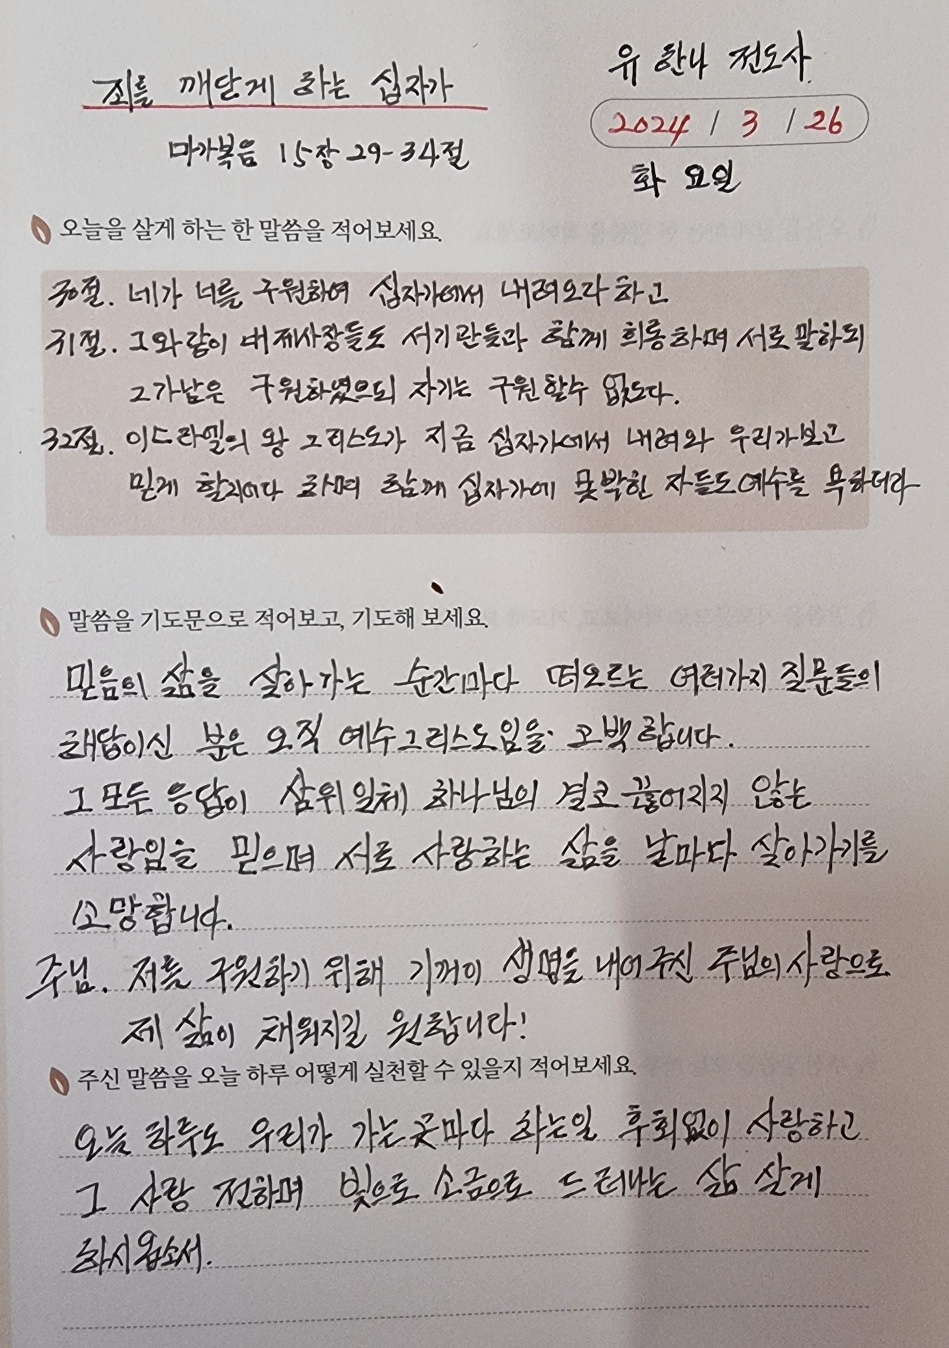 유 한나 전도사
죄를 깨닫게 하는 십자가
2024 / 3 / 26
마가복음 15장 29-34절
화 요일
오늘을 살게 하는 한 말씀을 적어보세요.
30절. 네가 너를 구원하여 십자가에서 내려오라 하고
31절. 그와같이 대제사장들도 서기관들과 함께 희롱하며 서로 말하되
그가 남은 구원하였으되 자기는 구원할수 없도다.
32절. 이스라엘의 왕 그리스도가 지금 십자가에서 내려와 우리가 보고
믿게 할지어다 하며 함께 십자가에 못박힌 자들도 예수를 욕하더라
말씀을 기도문으로 적어보고, 기도해 보세요.
믿음의 삶을 살아가는 순간마다 떠오르는 여러가지 질문들의
해답이신 분은 오직 예수그리스도임을 고백합니다.
그 모든 응답이 삼위일체 하나님의 결코 끊어지지 않는
사랑임을 믿으며 서로 사랑하는 삶을 날마다 살아가기를
소망합니다.
주님. 저를 구원하기 위해 기꺼이 생명을 내어주신 주님의 사랑으로
제 삶이 채워지길 원합니다!
주신 말씀을 오늘 하루 어떻게 실천할 수 있을지 적어보세요.
오늘 하루도 우리가 가는 곳마다 하는일 후회없이 사랑하고
그 사랑 전하며 빛으로 소금으로 드러나는 삶 살게
하시옵소서.